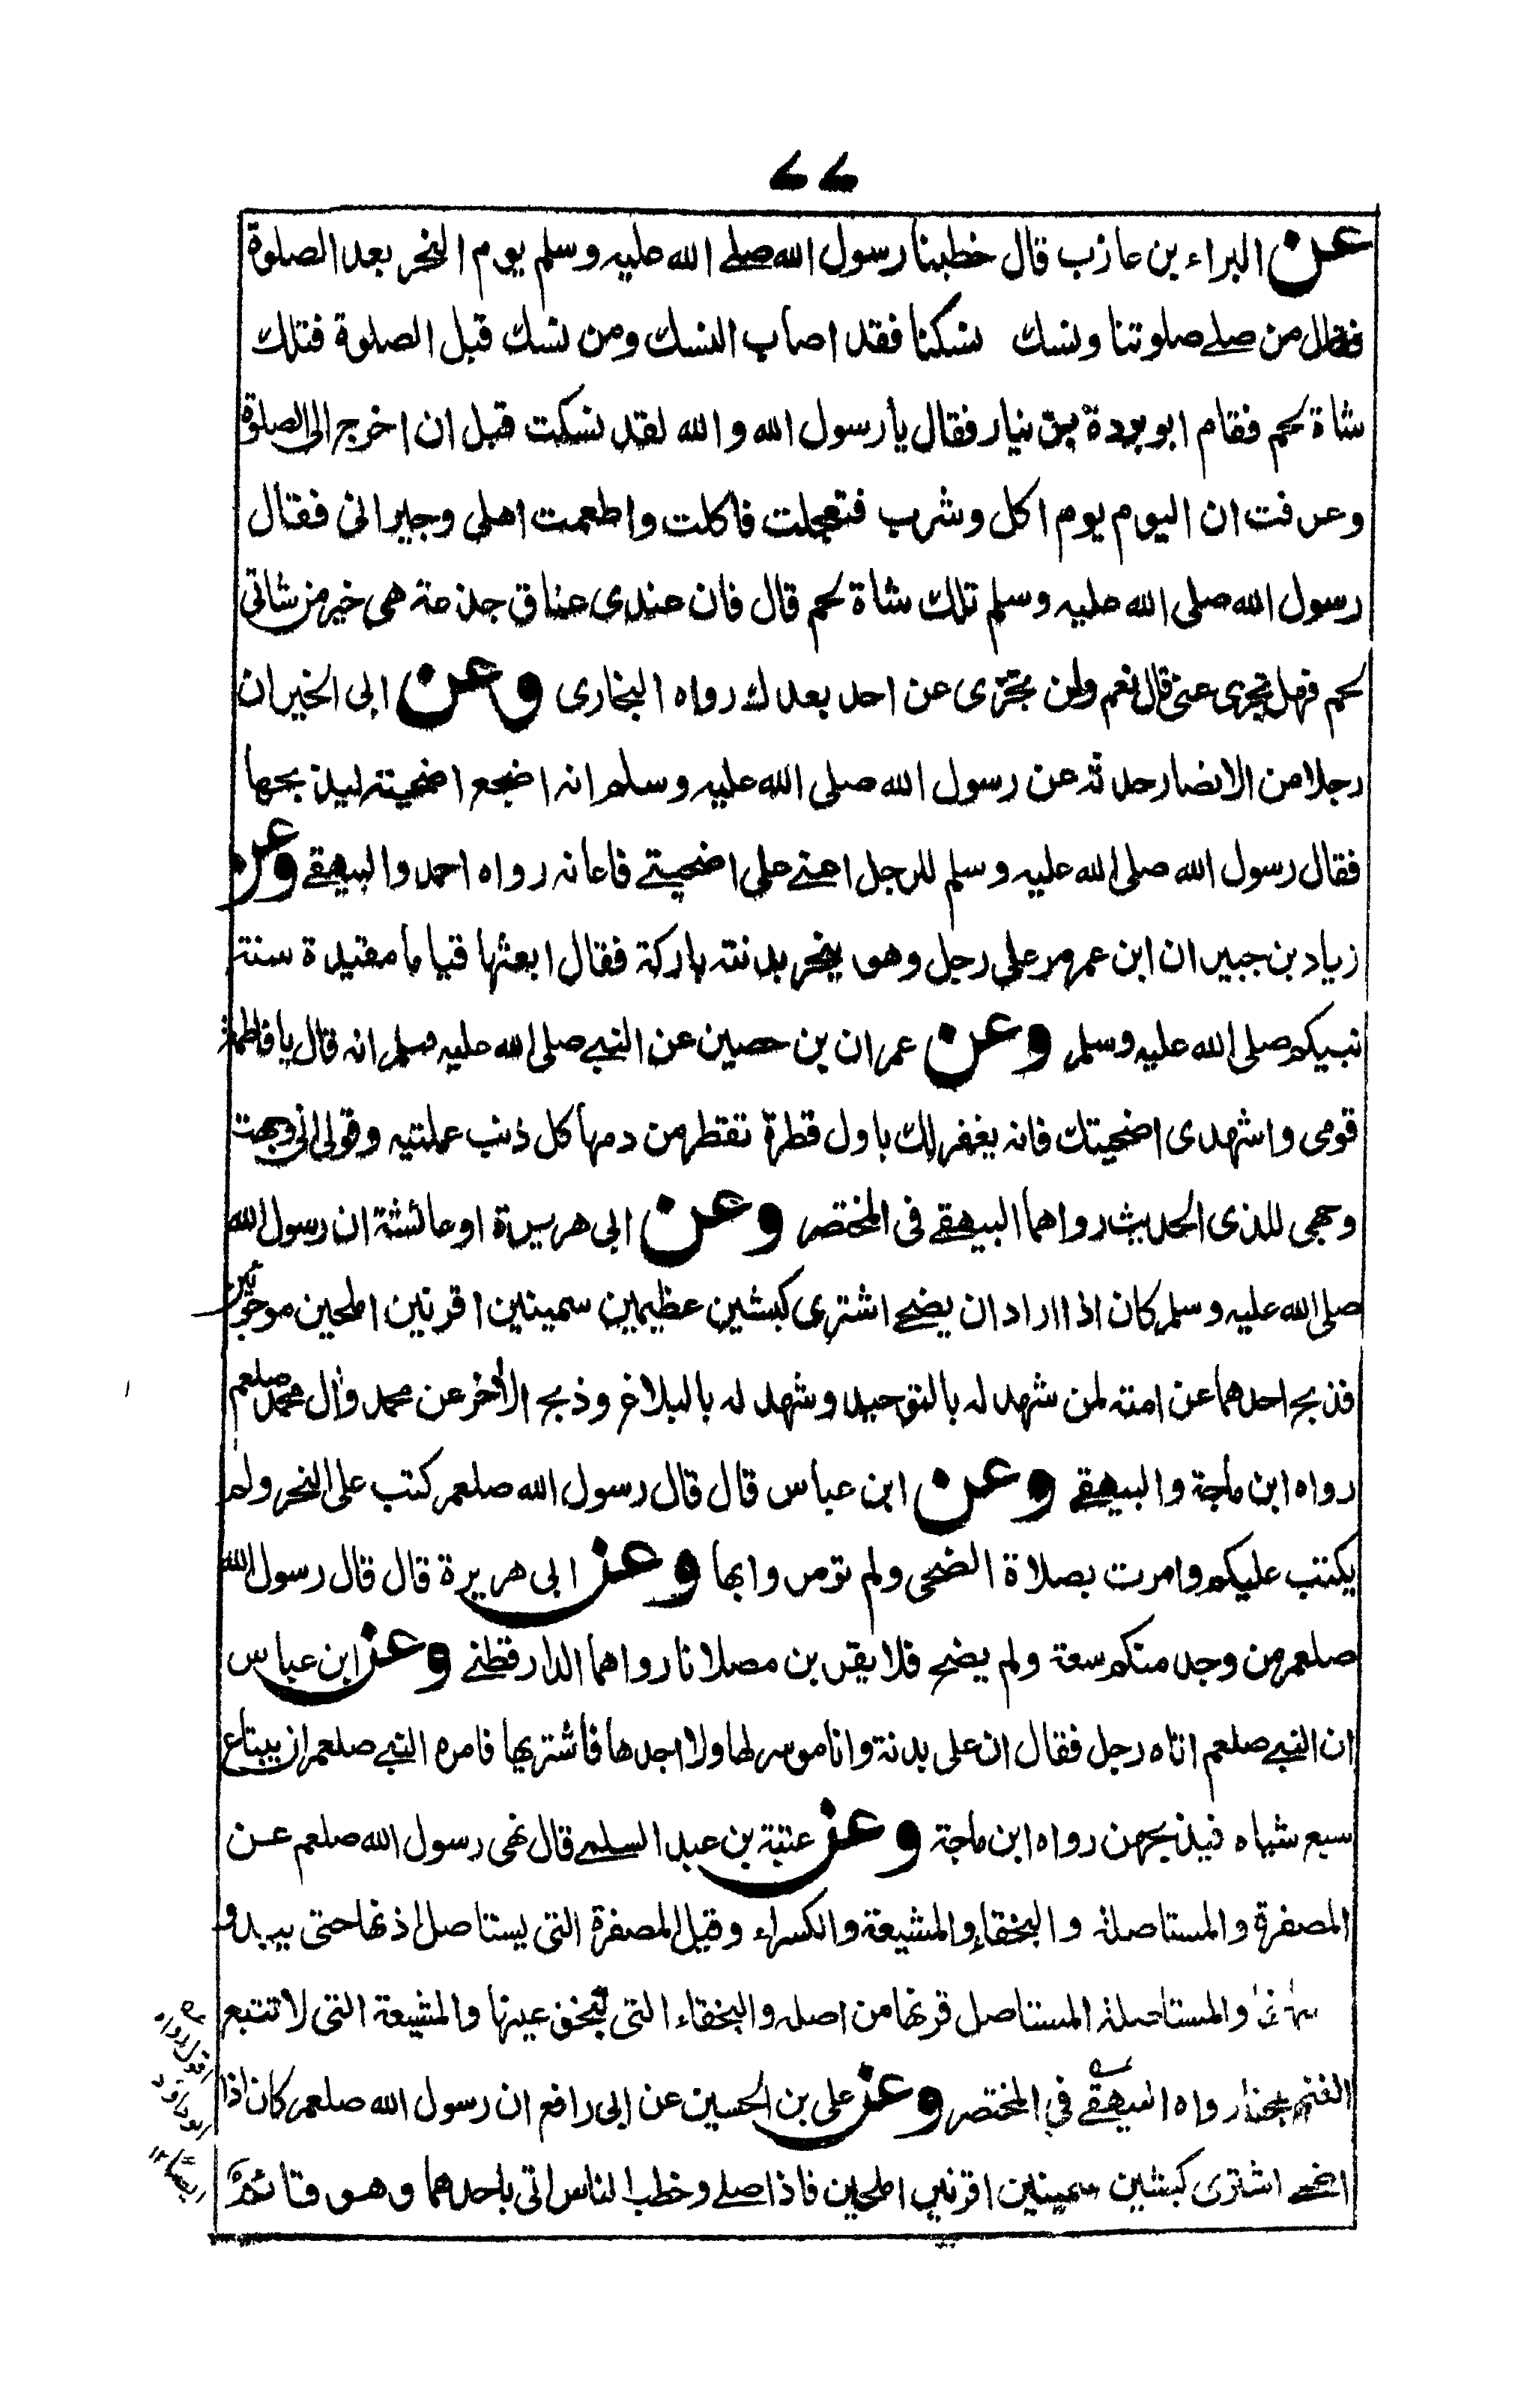 ٧٧
عن البراء بن عازب قال خطبنا رسول الله صلے الله عليه وسلم يوم النحر بعد الصلوة
فقال من صلے صلوتنا ونسك نسكنا فقد اصاب النسك ومن نسك قبل الصلوة فتلك
شاة لحم فقام ابو بردة بن نيار فقال يا رسول الله والله لقد نسكت قبل ان اخرج الى الصلوة
وعرفت ان اليوم يوم اكل وشرب فتعجلت فاكلت واطعمت اهلى وجيرانى فقال
رسول الله صلى الله عليه وسلم تلك شاة لحم قال فان عندى عناق جذعة هى خير من شاتى
لحم فهل تجزى عنى قال نعم ولن تجزى عن احد بعدك رواه البخارى وعن ابى الخير ان
رجلا من الانصار حدثه عن رسول الله صلى الله عليه وسلم انه اضجع اضحيته ليذبحها
فقال رسول الله صلى الله عليه وسلم للرجل اعنے على اضحيتے فاعانه رواه احمد والبيهقے وعن
زياد بن جبير ان ابن عمر مر على رجل وهو ينحر بدنته باركة فقال ابعثها قياما مقيدة سنة
نبيكم صلى الله عليه وسلم وعن عمران بن حصين عن النبے صلى الله عليه وسلم انه قال يا فاطمة
قومى واشهدى اضحيتك فانه يغفر لك باول قطرة تقطر من دمها كل ذنب عملتيه وقولى انى وجهت
وجهى للذى الحديث رواهما البيهقے فى المختصر وعن ابى هريرة او عائشة ان رسول الله
صلى الله عليه وسلم كان اذا اراد ان يضحے اشترى كبشين عظيمين سمينين اقرنين املحين موجوئين
فذبح احدهما عن امته لمن شهد له بالتوحيد وشهد له بالبلاغ وذبح الآخر عن محمد وآل محمد صلعم
رواه ابن ماجة والبيهقے وعن ابن عباس قال قال رسول الله صلعم كتب على النحر ولم
يكتب عليكم وامرت بصلاة الضحى ولم تومروا بها وعن ابى هريرة قال قال رسول الله
صلعم من وجد منكم سعة ولم يضح فلا يقربن مصلانا رواهما الدارقطنے وعن ابن عباس
ان النبے صلعم اتاه رجل فقال ان على بدنة وانا موسر لها ولا اجدها فاشتريها فامره النبے صلعم ان يبتاع
سبع شياه فيذبحهن رواه ابن ماجة وعن عتبة بن عبد السلمے قال نهى رسول الله صلعم عن
المصفرة والمستاصلة والبخقاء والمشيعة والكسراء وقيل المصفرة التى يستاصل اذنها حتى يبدو
والمستاصلة المستاصل قرنها من اصله والبخقاء التى تبخق عينها والمشيعة التى لا تتبع
الغنم عجفا رواه البيهقے فى المختصر وعن على بن الحسين عن ابى رافع ان رسول الله صلعم كان اذا
اضحے اشترى كبشين سمينين اقرنين املحين فاذا صلے وخطب الناس اتى باحدهما وهو قائم
اقول رواه
ابو داود
ايضا ١٢